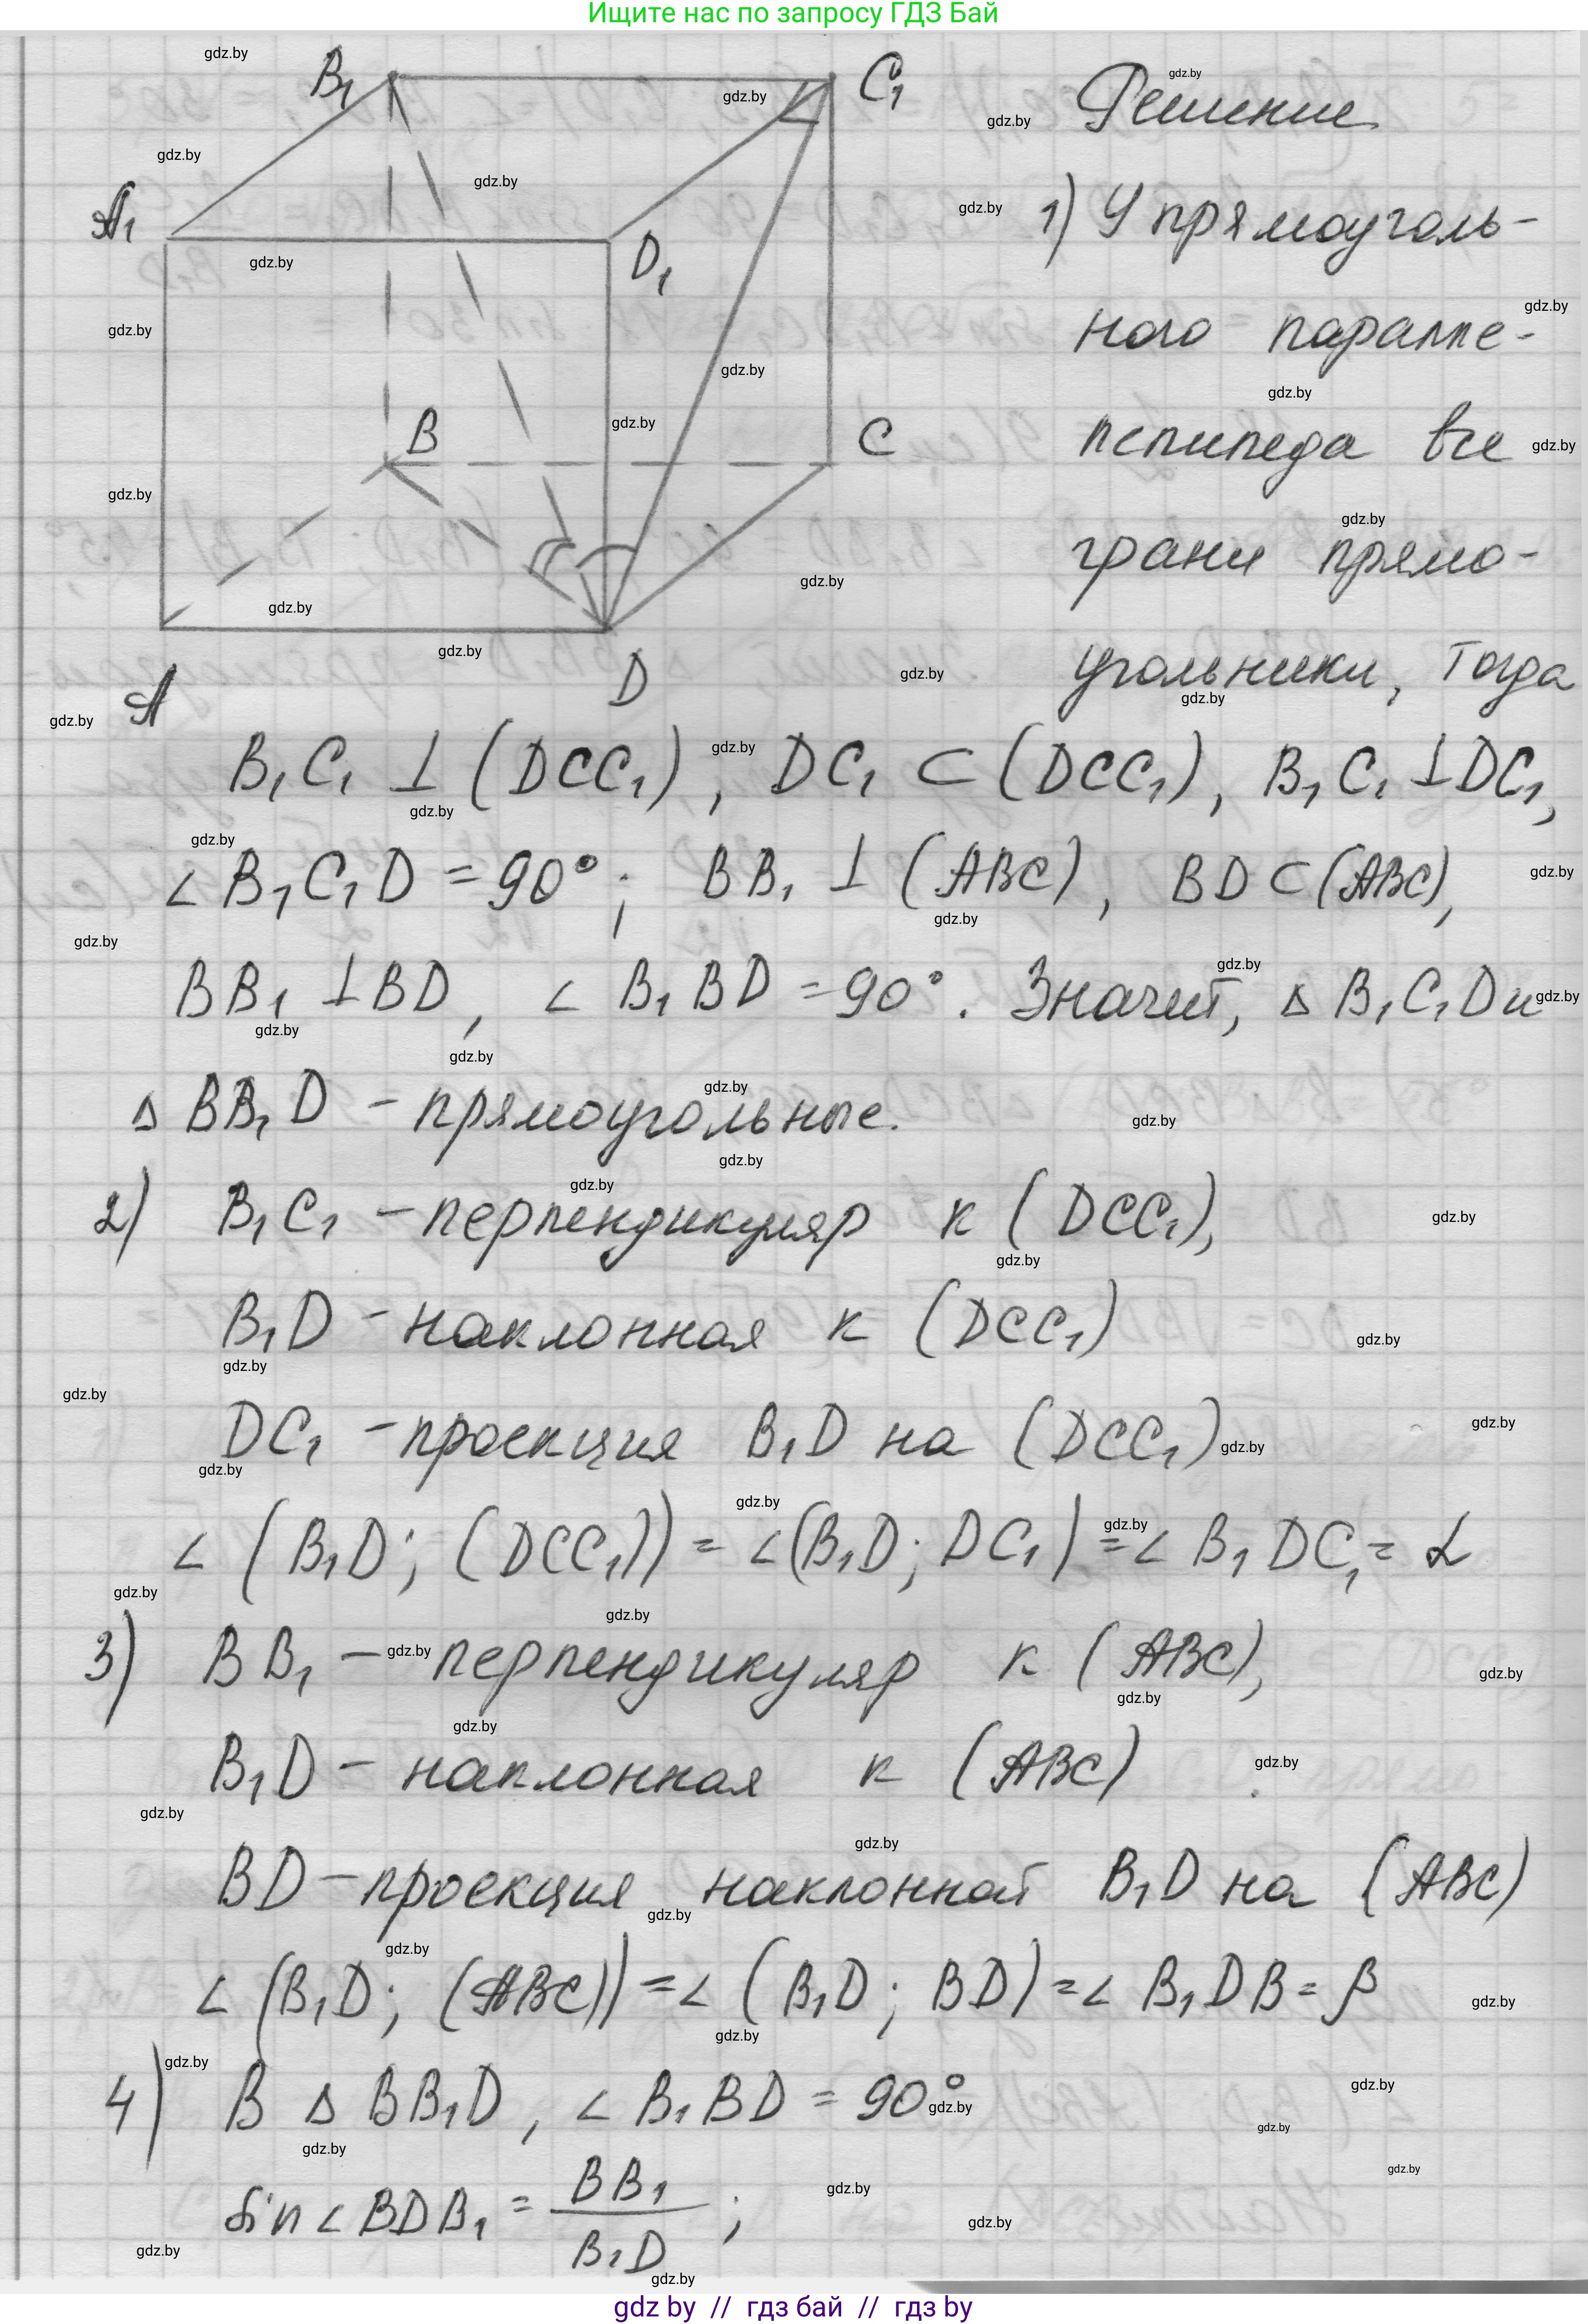 Ищите нас по запросу ГДЗ Бай
B₁
C₁
A₁
D₁
B
C
A
D
Решение
1) У прямоуголь-
ного паралле-
лепипеда все
грани прямо-
угольники, тогда
B₁C₁ ⊥ (DCC₁), DC₁ ⊂ (DCC₁), B₁C₁ ⊥ DC₁,
∠ B₁C₁D = 90°; BB₁ ⊥ (ABC), BD ⊂ (ABC),
BB₁ ⊥ BD, ∠ B₁BD = 90°. Значит, Δ B₁C₁D и
Δ BB₁D – прямоугольные.
2) B₁C₁ – перпендикуляр к (DCC₁),
B₁D – наклонная к (DCC₁)
DC₁ – проекция B₁D на (DCC₁)
∠ (B₁D; (DCC₁)) = ∠(B₁D; DC₁) = ∠ B₁DC₁ = α
3) BB₁ – перпендикуляр к (ABC),
B₁D – наклонная к (ABC)
BD – проекция наклонной B₁D на (ABC)
∠ (B₁D; (ABC)) = ∠ (B₁D; BD) = ∠ B₁DB = β
4) В Δ BB₁D, ∠ B₁BD = 90°
sin ∠ BDB₁ = BB₁ / B₁D ;
gdz by // гдз бай // гдз by